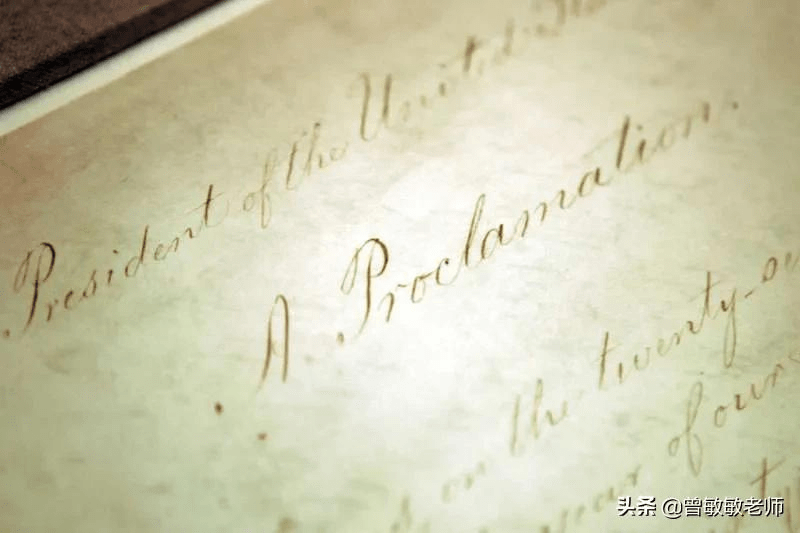 President of the United
A Proclamation.
on the twenty-se
year of our
头条 @曾敏敏老师